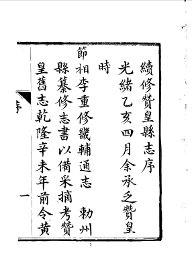 續修贊皇縣志序
光緒乙亥四月余承乏贊皇
時
節相李重修畿輔通志　勅州
縣纂修志書以備采摘考贊
皇舊志乾隆辛未年前令黃
序
一